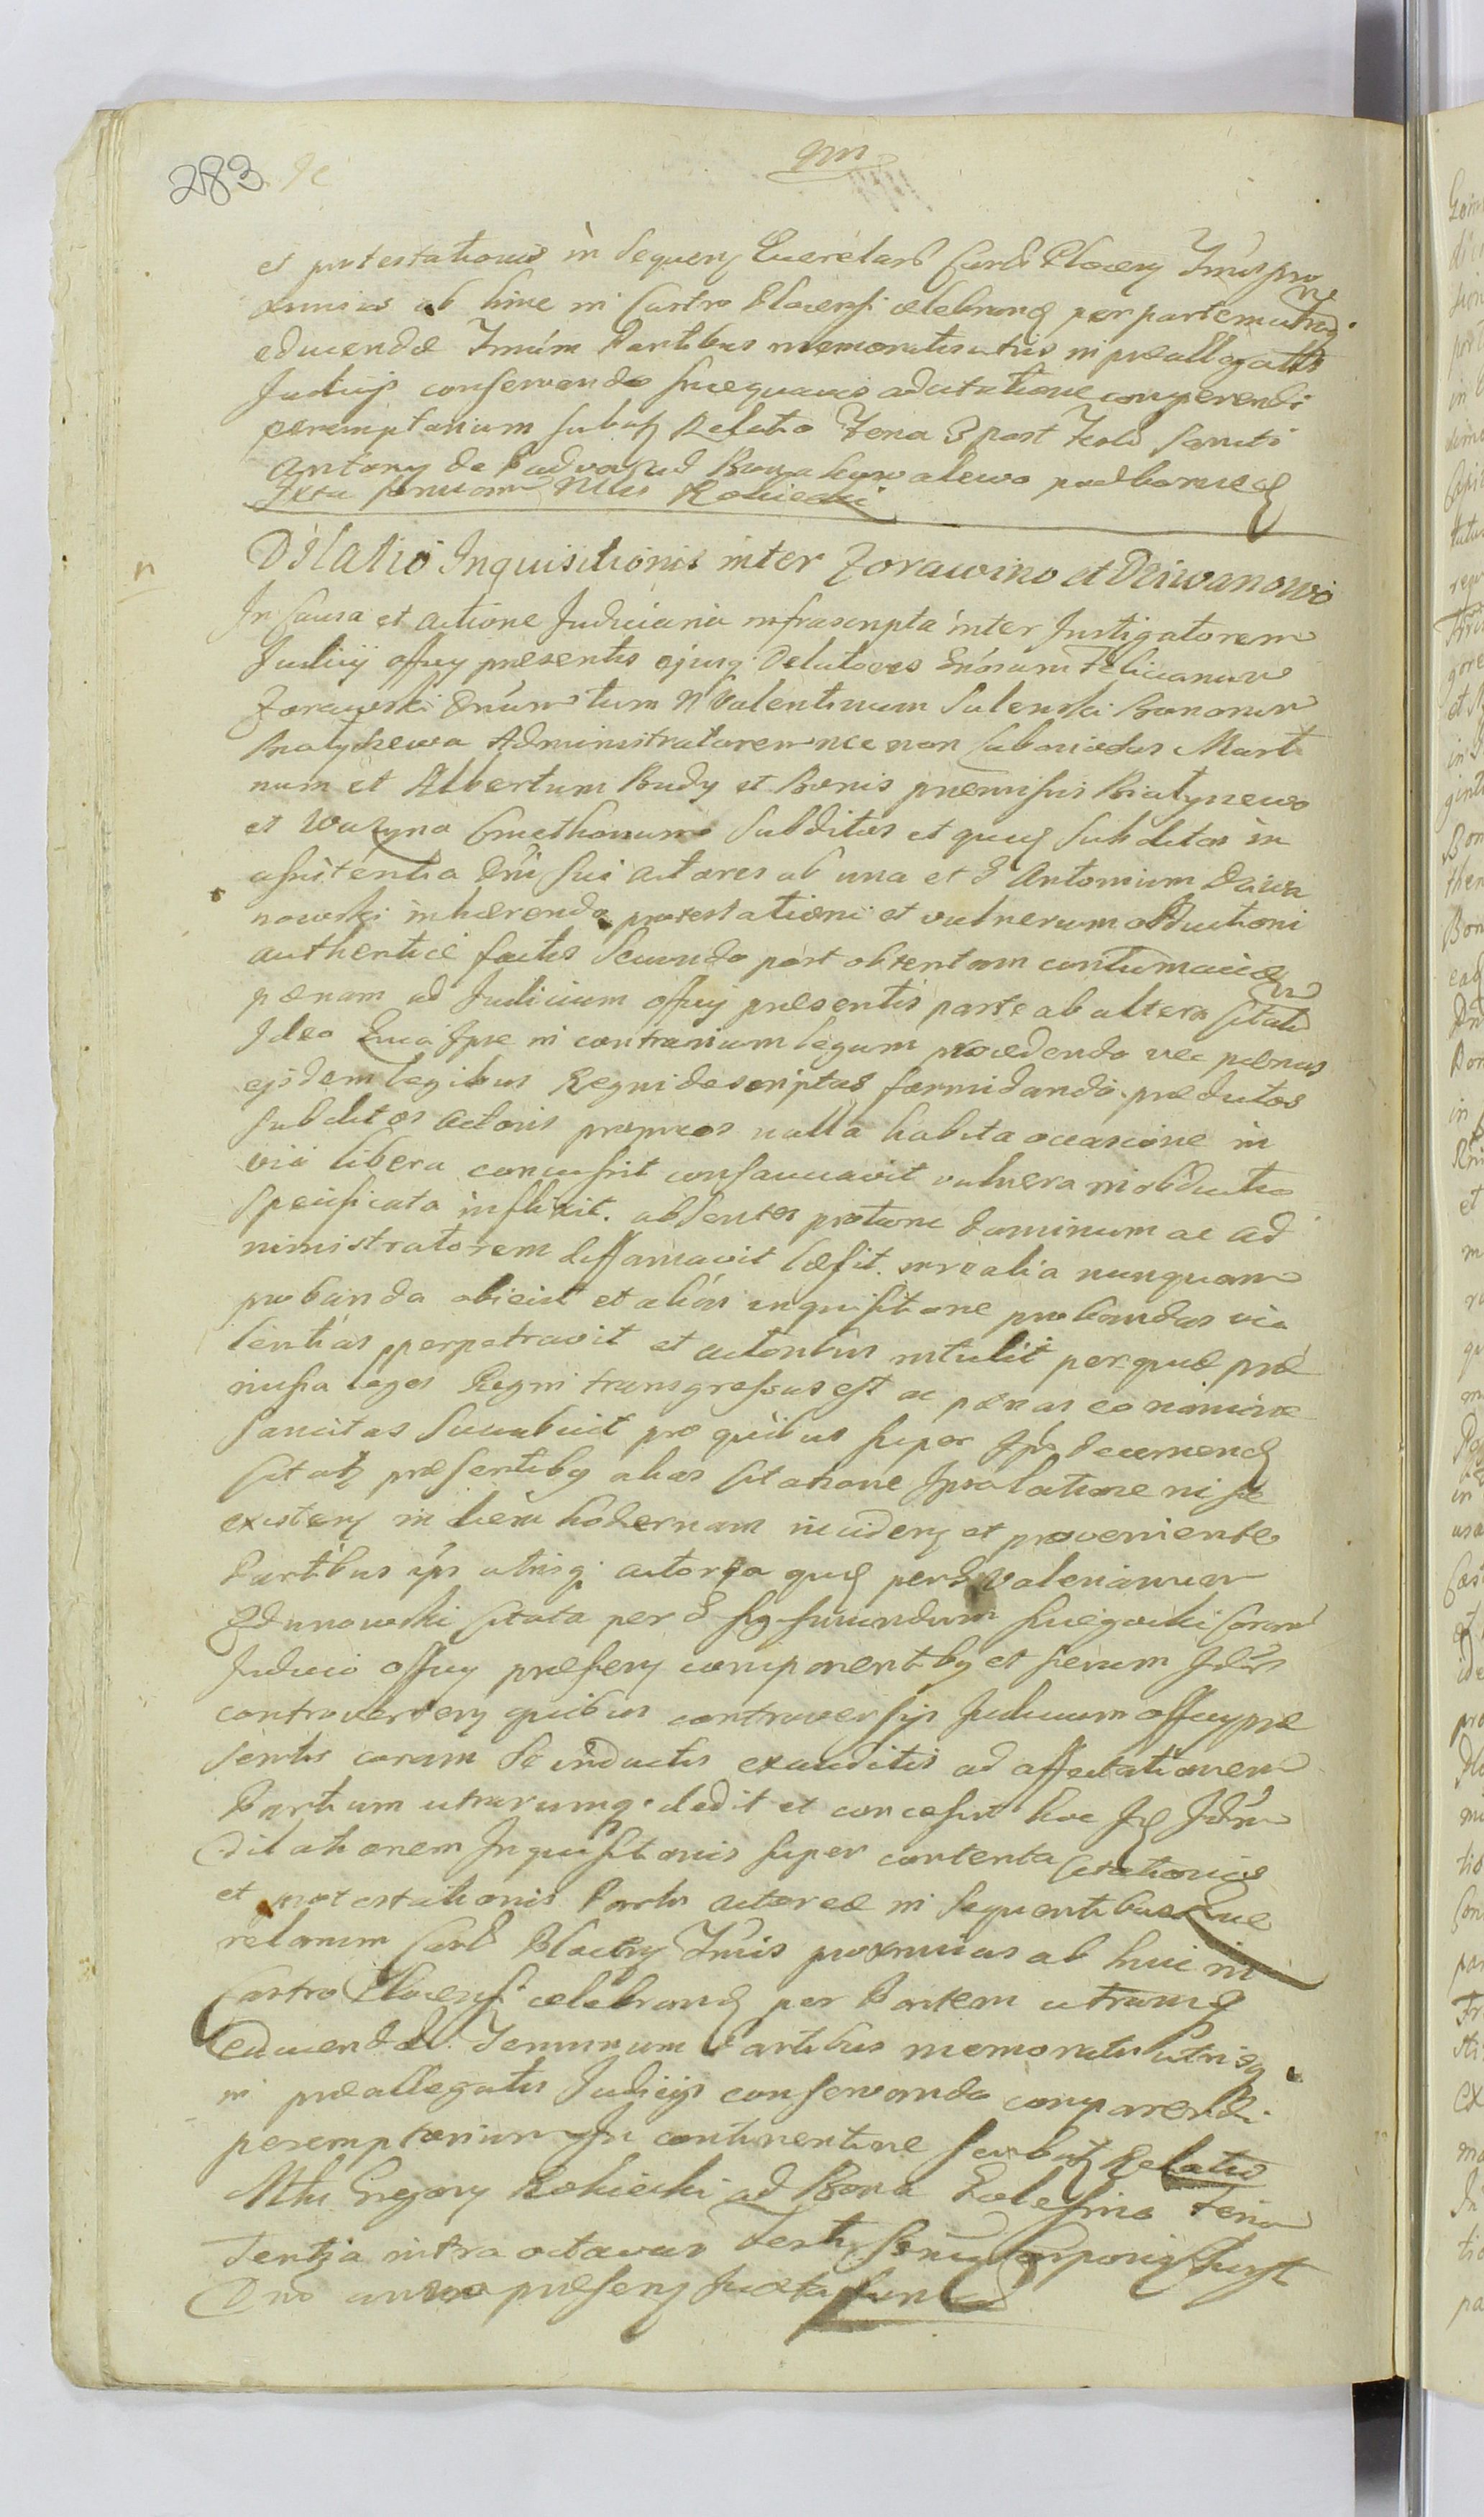 283
et protestationis in sequen Querelarũ Cards Plocen Tmis pro
xmius ab hinc in Castro Plocensi celebrand per partem utramq
educendæ Tmum Partibus memoratis utris in præallegatis
Judicijs conservando sineqvavis adcitatione comparendi
peremptorium Relatio Feria 3 post Festũ Sancti
Antony de Padva ad Bona kowalewo podborne
Juxta formam Mtlis Rokicki
Dilatio Inquisitionis inter Zorawino et Dziwanowo
n
In Causa et actione Judiciaria infrascripta inter Instigatorem
Judicij offcij præsentis ejusq Delatores Gnosum Felicianum
Zorawski Dnum tum N Valentinum Sulenski Bonorum
Białyszewa Administratorem nec non laboriosos Marti
num et Albertum Budy et Bonis præmissis Białyszewo
et Wozyno Cmethonum Subditos et qucq Subditos in
assistentia Dni sui actores ab una et G Antonium Dziwa
nowski inhærendo protestationi et vulnerum obductioni
authentice factis Secundo post obtentam contumaciæ
pænam ad Judicium offcij præsentis parte ab altera Citatũ
Ideo Quia Ipse in contrarium legum procedendo nec pænas
ejsdem legibus Regni descriptas formidando prædictos
subditos actoris proprios nulla habita occasione in
via libera concussit consauciavit vulnera in obductio
specificata inflixit. absentes protunc Dominum ac ad
ministratorem diffamavit læsit. irrealia nunquam
probanda obiecit et alias inquisitione probandas vio
lentias perpetravit et actoribus intulit per quæ præ
missa leges Regni transgressus est ac pænas eo nomine
sancitas Succubuit pro quibus super Ips decernend
Citatq præsentibq alias Citatione Ipso latione in se
existen in diem hodiernam inciden et proveniente
Partibus ips utrisq actorea qucq per G Valerianum
Zdunowski Citata per G Sigismundum Sniegocki Coram
Judicio offcij præsen componentibq et serum Idrs
controverten quibus controversijs Judicium offcij præ
sentis coram se inductis exauditis ad affectationem
Partium utrarumq dedit et concessit hoc
dilationem Inquisitionis super contenta Citationis
et protestationis Partis actoreæ in sequentibus Que
relarum Cards Plocen Tmis proxmius ab hinc in
Castro Plocensi celebrand per Partem utramq
educendæ. Terminum Partibus memoratis utrisq
in præallegatis Judicijs conservando comparendi
peremptorium In continentine Relatio
Mtlis Gregory Rokicki ad Bona Golesino Feria
Tertja intra octavas Festi Smi Corporis Christi
Dno anno præsen Juxta form